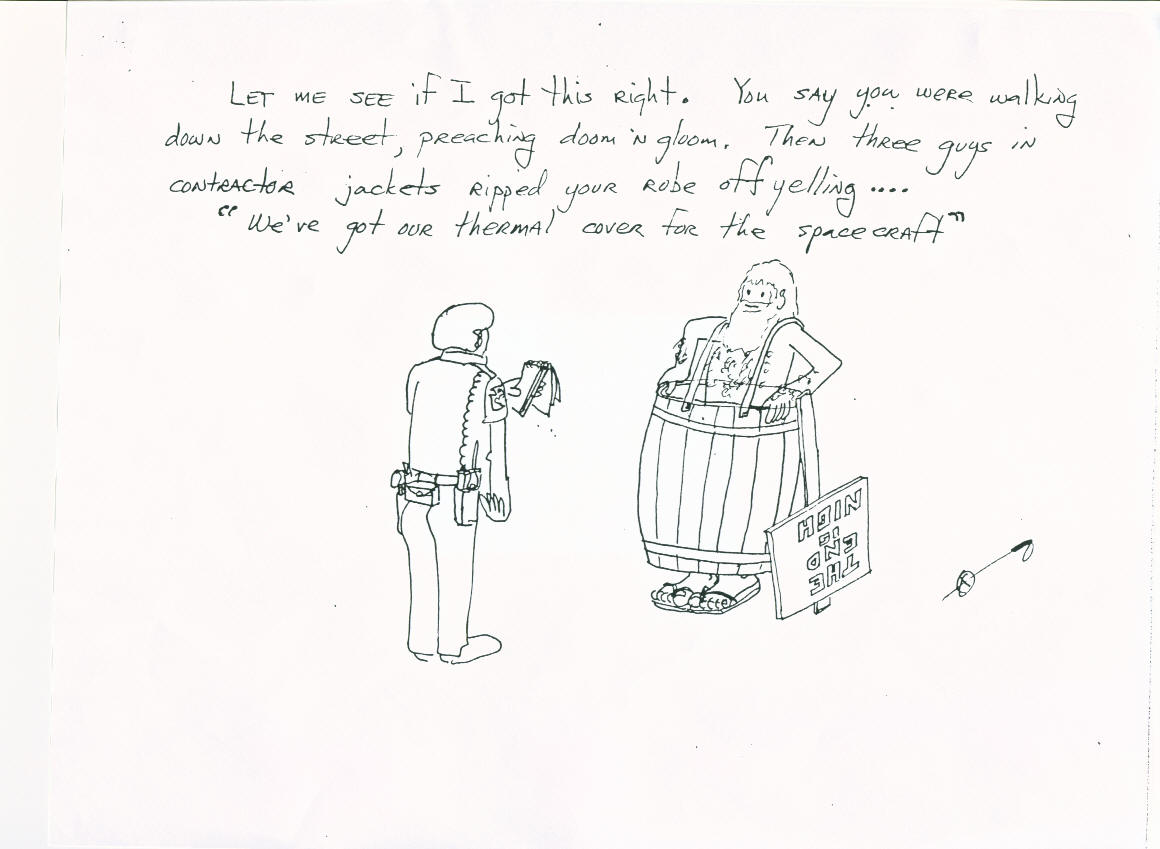 LET ME SEE if I got this right. You SAY you were walking
down the street, preaching doom 'n gloom. Then three guys in
contractor jackets ripped your robe off yelling ....
"We've got our thermal cover for the spacecraft"
THE
END
IS
NIGH